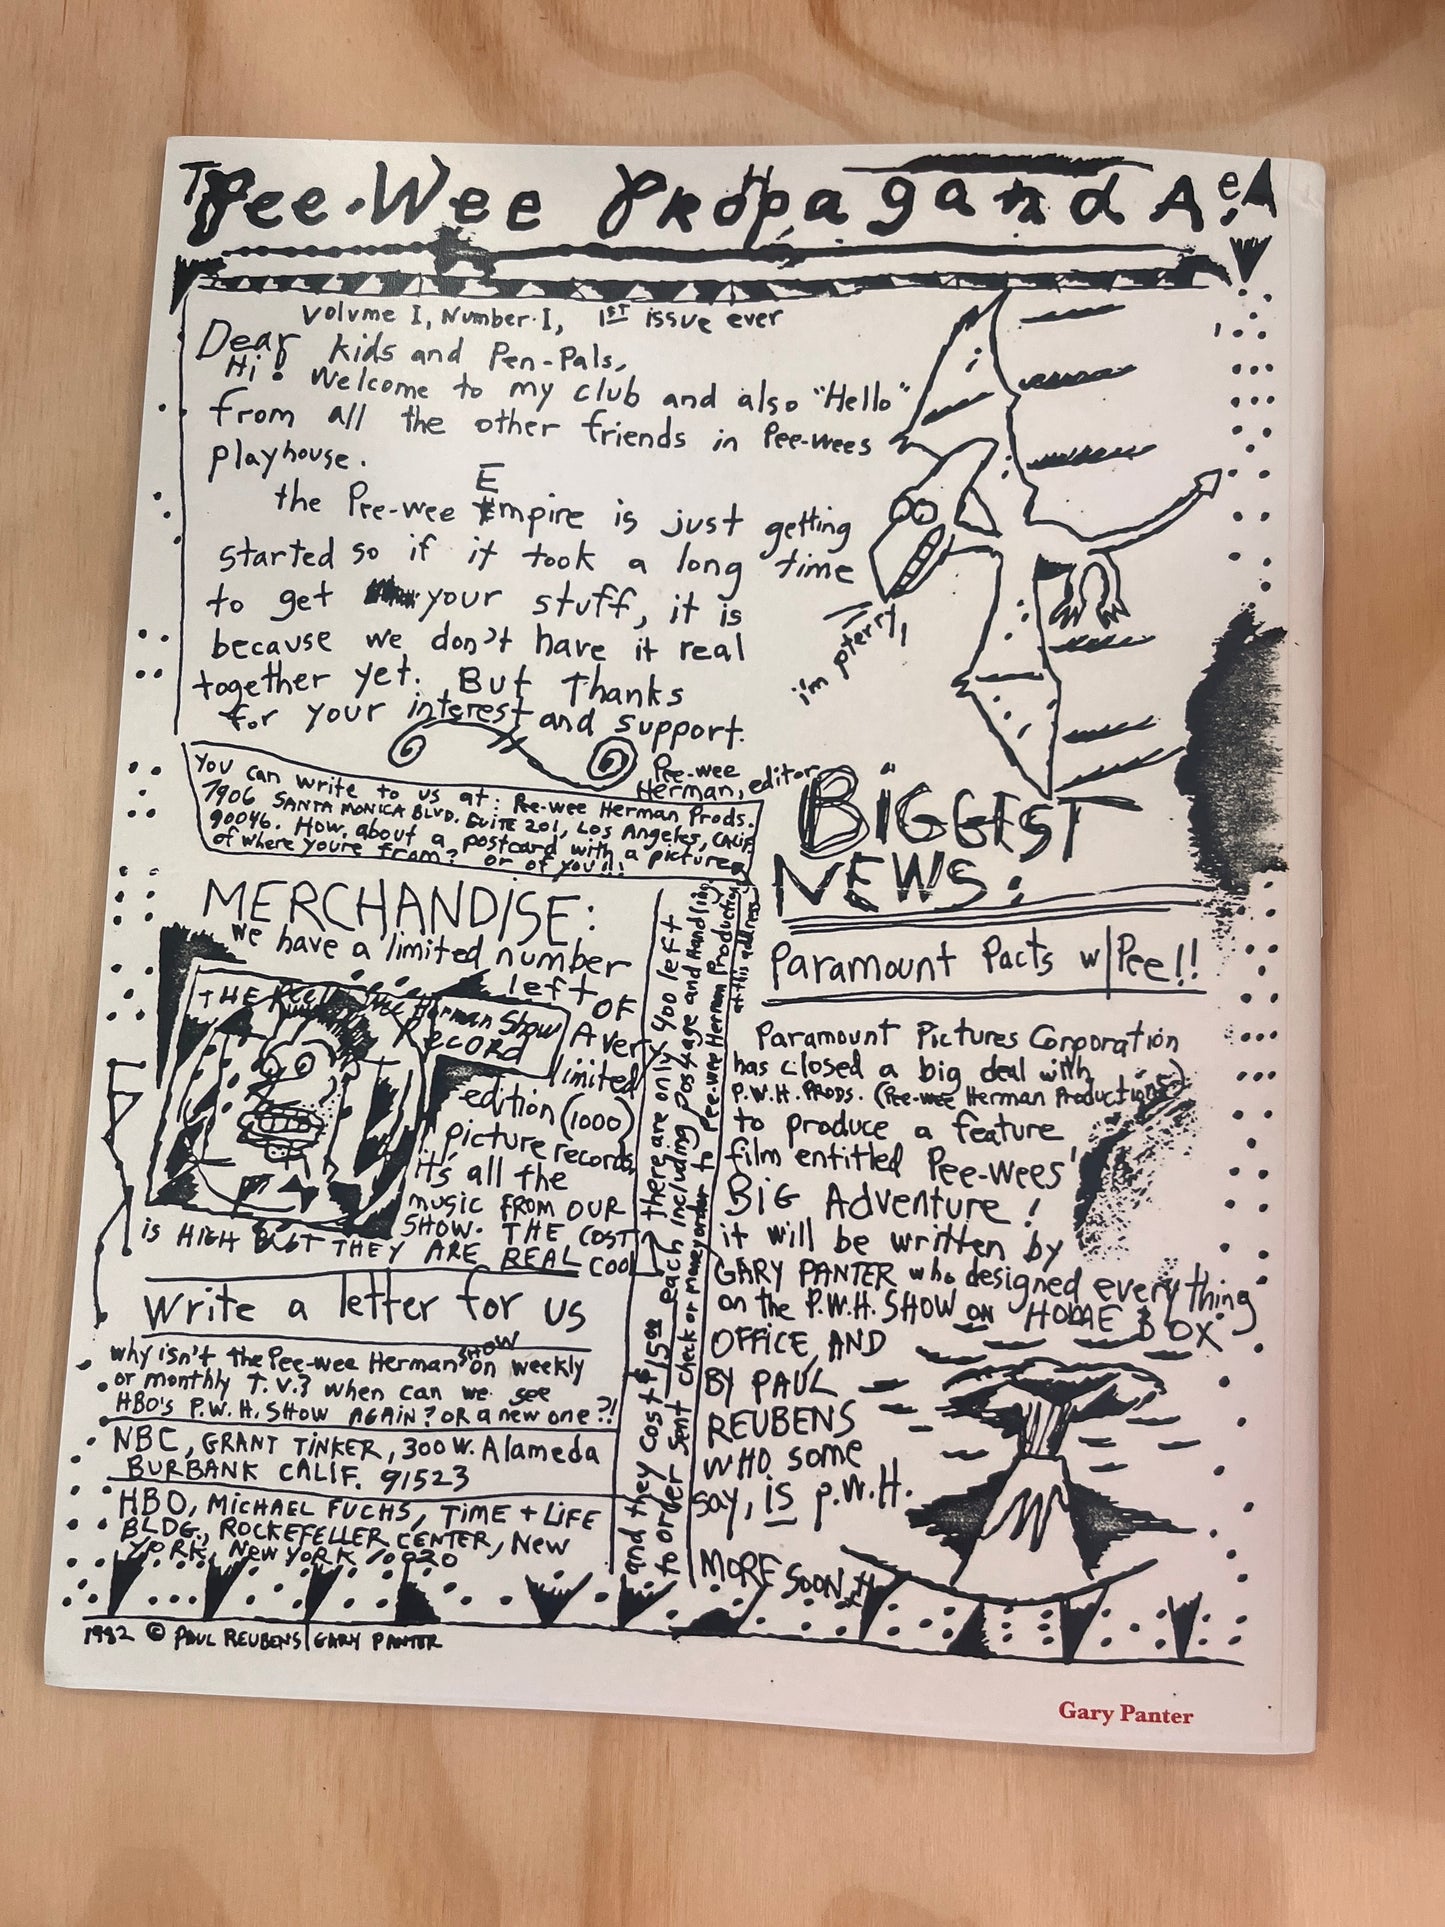 The Pee-Wee Propaganda
Volume I, Number I, 1ST issue ever
Dear kids and Pen-Pals,
Hi! Welcome to my club and also "Hello"
from all the other friends in Pee-wees
playhouse.
the Pee-wee Empire is just getting
started so if it took a long time
to get your stuff, it is
because we don't have it real
together yet. But Thanks
for your interest and support.
Pee-wee
Herman, editor
i'm pterry!
You can write to us at: Pee-wee Herman Prods.
7906 SANTA MONICA BLVD. SUITE 201, Los Angeles, CALIF
90046. How about a postcard with a picture
of where youre from? or of you!!!
MERCHANDISE:
we have a limited number
left OF
A very
limited
edition (1000)
picture records
it's all the
music FROM OUR
SHOW. THE COST
is HIGH BUT THEY ARE REAL cool
THE Pee Wee Herman Show
Record
there are only 400 left
and they cost $15.00 each including Postage and Handling
to order sent check or money order to Pee-wee Herman Production
at this address
Write a letter for us
why isn't the Pee-wee Herman SHOW on weekly
or monthly T.V.? when can we see
HBO's P.W.H. SHOW AGAIN? OR a new one?!
NBC, GRANT TINKER, 300 W. Alameda
BURBANK CALIF. 91523
HBO, MICHAEL FUCHS, TIME + LIFE
BLDG., ROCKEFELLER CENTER, New
YORK, NEW YORK 10020
BIGGEST
NEWS:
Paramount Pacts w/Pee!!
Paramount Pictures Corporation
has closed a big deal with
P.W.H. PRODS. (Pee-wee Herman Productions)
to produce a feature
film entitled Pee-Wees'
BiG Adventure!
it will be written by
GARY PANTER who designed everything
on the P.W.H. SHOW ON HOME BOX
OFFICE, AND
BY PAUL
REUBENS
WHO some
say, IS P.W.H.
MORE SOON
1982 © PAUL REUBENS/GARY PANTER
Gary Panter